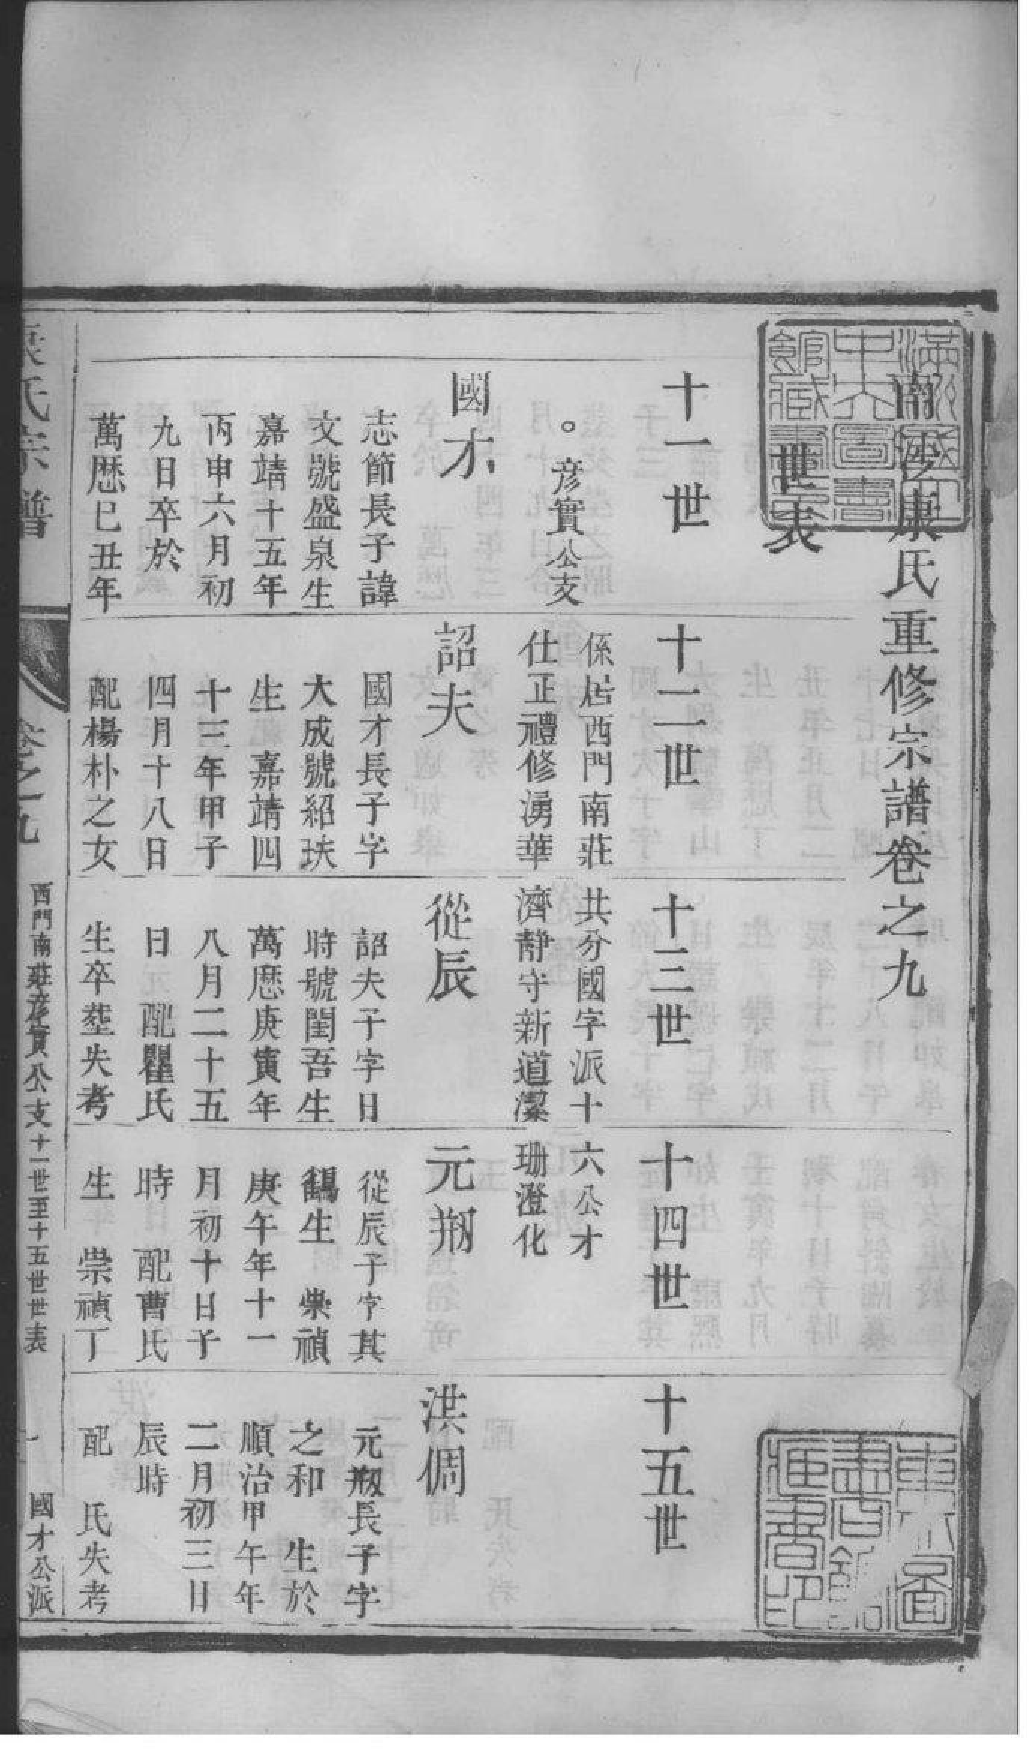 南沙康氏重修宗譜卷之九
世表
十一世
十二世
十三世
十四世
十五世
彥實公支
係居西門南莊共分國字派十六公才
仕正禮修湧華濟靜守新道潔珊澄化
國才
志節長子諱
文號盛泉生
嘉靖十五年
丙申六月初
九日卒於
萬歷巳丑年
詔夫
國才長子字
大成號紹玞
生 嘉靖四
十三年甲子
四月十八日
配楊朴之女
從辰
詔夫子字日
時號閏吾生
萬歷庚寅年
八月二十五
日 配瞿氏
生卒塟失考
元㭼
從辰子字其
鶴生 崇禎
庚午年十一
月初十日子
時 配曹氏
生 崇禎丁
洪倜
元㭼長子字
之和 生於
順治甲午年
二月初三日
辰時
配 氏失考
康氏宗譜
卷之九
西門南莊彥實公支十一世至十五世世表
一
國才公派